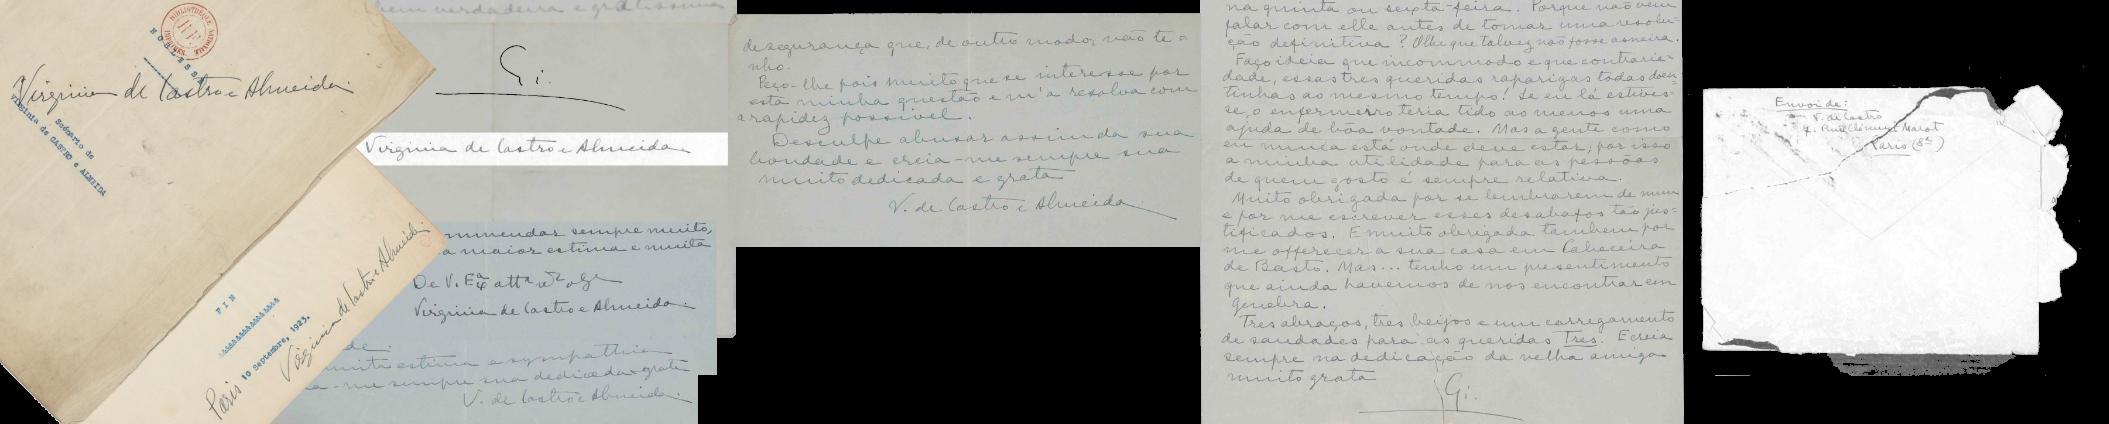 BIBLIOTHÈQUE NATIONALE
R.F.
Virginia de Castro e Almeida
Scénario de
Virginia de CASTRO e ALMEIDA
FIN
Paris 10 Septembre, 1923.
Virginia de Castro e Almeida
bem verdadeira e gratissima
Gi.
Virginia de Castro e Almeida
mmendar sempre muito,
a maior estima e muita
De V. Exª
Virginia de Castro e Almeida
de
muita estima e sympathia
-me sempre sua dedicada e grata
V. de Castro e Almeida
de segurança que, de outro modo, não te=
nho.
Peço-lhe pois muito que se interesse por
esta minha questão e m'a resolva com
a rapidez possivel.
Desculpe abusar assim da sua
bondade e creia-me sempre sua
muito dedicada e grata
V. de Castro e Almeida
na quinta ou sexta-feira. Porque não vem
falar com elle antes de tomar uma resolu=
ção definitiva? Olhe que talvez não fosse asneira.
Faço ideia que incommodo e que contrarie=
dade, essas tres queridas raparigas todas doen=
tinhas ao mesmo tempo! Se eu lá estives=
se, o enfermeiro teria tido ao menos uma
ajuda de bôa vontade. Mas a gente como
eu nunca está onde deve estar; por isso
a minha utilidade para as pessôas
de quem gosto é sempre relativa.
Muito obrigada por se lembrarem de mim
e por me escrever esses desabafos tão jus=
tificados. E muito obrigada tambem por
me offerecer a sua casa em Cabeceira
de Basto. Mas... tenho um presentimento
que ainda havemos de nos encontrar em
Genebra.
Tres abraços, tres beijos e um carregamento
de saudades para as queridas Tres. E creia
sempre na dedicação da velha amiga
muito grata
Gi.
Envoi de:
V. de Castro
Rue Clément Marot
Paris (8e)